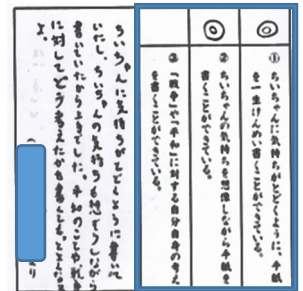 ◎
①ちいちゃんの気持ちがとどくように、手紙
を一生けんめい書くことができている。
◎
②ちいちゃんの気持ちを想像しながら手紙を
書くことができている。
③「戦争」や「平和」に対する自分自身の考え
を書くことができている。
ちいちゃんに気持ちがとどくように書いて
いたし、ちいちゃんの気持ちも想ぞうしながら
書いていたからよかった。平和のことや戦争
に対してどう考えたかを書くともっとよい
よ。
より